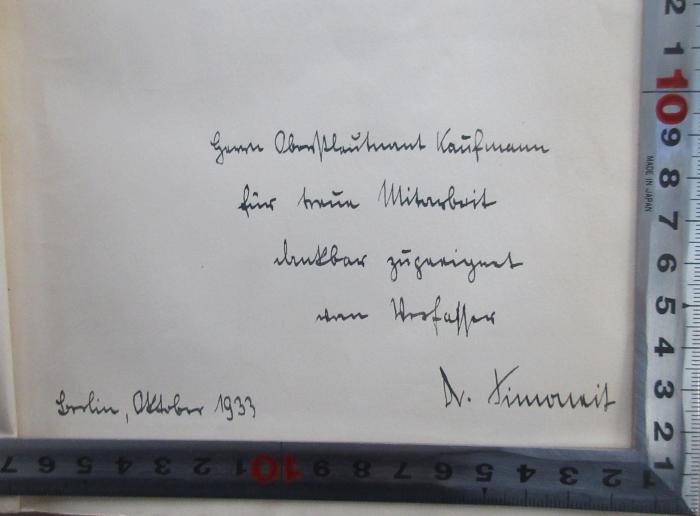 Herrn Oberstleutnant Kaufmann
für treue Mitarbeit
dankbar zugeeignet
vom Verfasser
Dr. Simoneit
Berlin, Oktober 1933
2 1 10 9 8 7 6 5 4 3 2 1
MADE IN JAPAN
7 6 5 4 3 2 1 10 9 8 7 6 5 4 3 2 1